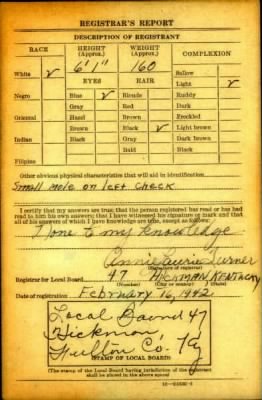 REGISTRAR'S REPORT
DESCRIPTION OF REGISTRANT
RACE HEIGHT (Approx.) WEIGHT (Approx.) COMPLEXION
6' 1" 160
White ✓ EYES HAIR Sallow
Light ✓
Negro Blue ✓ Blonde Ruddy
Gray Red Dark
Oriental Hazel Brown Freckled
Brown Black ✓ Light brown
Indian Black Gray Dark brown
Bald Black
Filipino
Other obvious physical characteristics that will aid in identification
Small mole on left cheek
I certify that my answers are true; that the person registered has read or has had
read to him his own answers; that I have witnessed his signature or mark and that
all of his answers of which I have knowledge are true, except as follows:
None to my knowledge
Annie Laurie Turner
(Signature of registrar)
Registrar for Local Board 47 HICKMAN KENTUCKY
(Number) (City or county) (State)
Date of registration February 16, 1942
Local Board 47
Hickman,
Fulton Co. Ky
STAMP OF LOCAL BOARD
(The stamp of the Local Board having jurisdiction of the registrant
shall be placed in the above space)